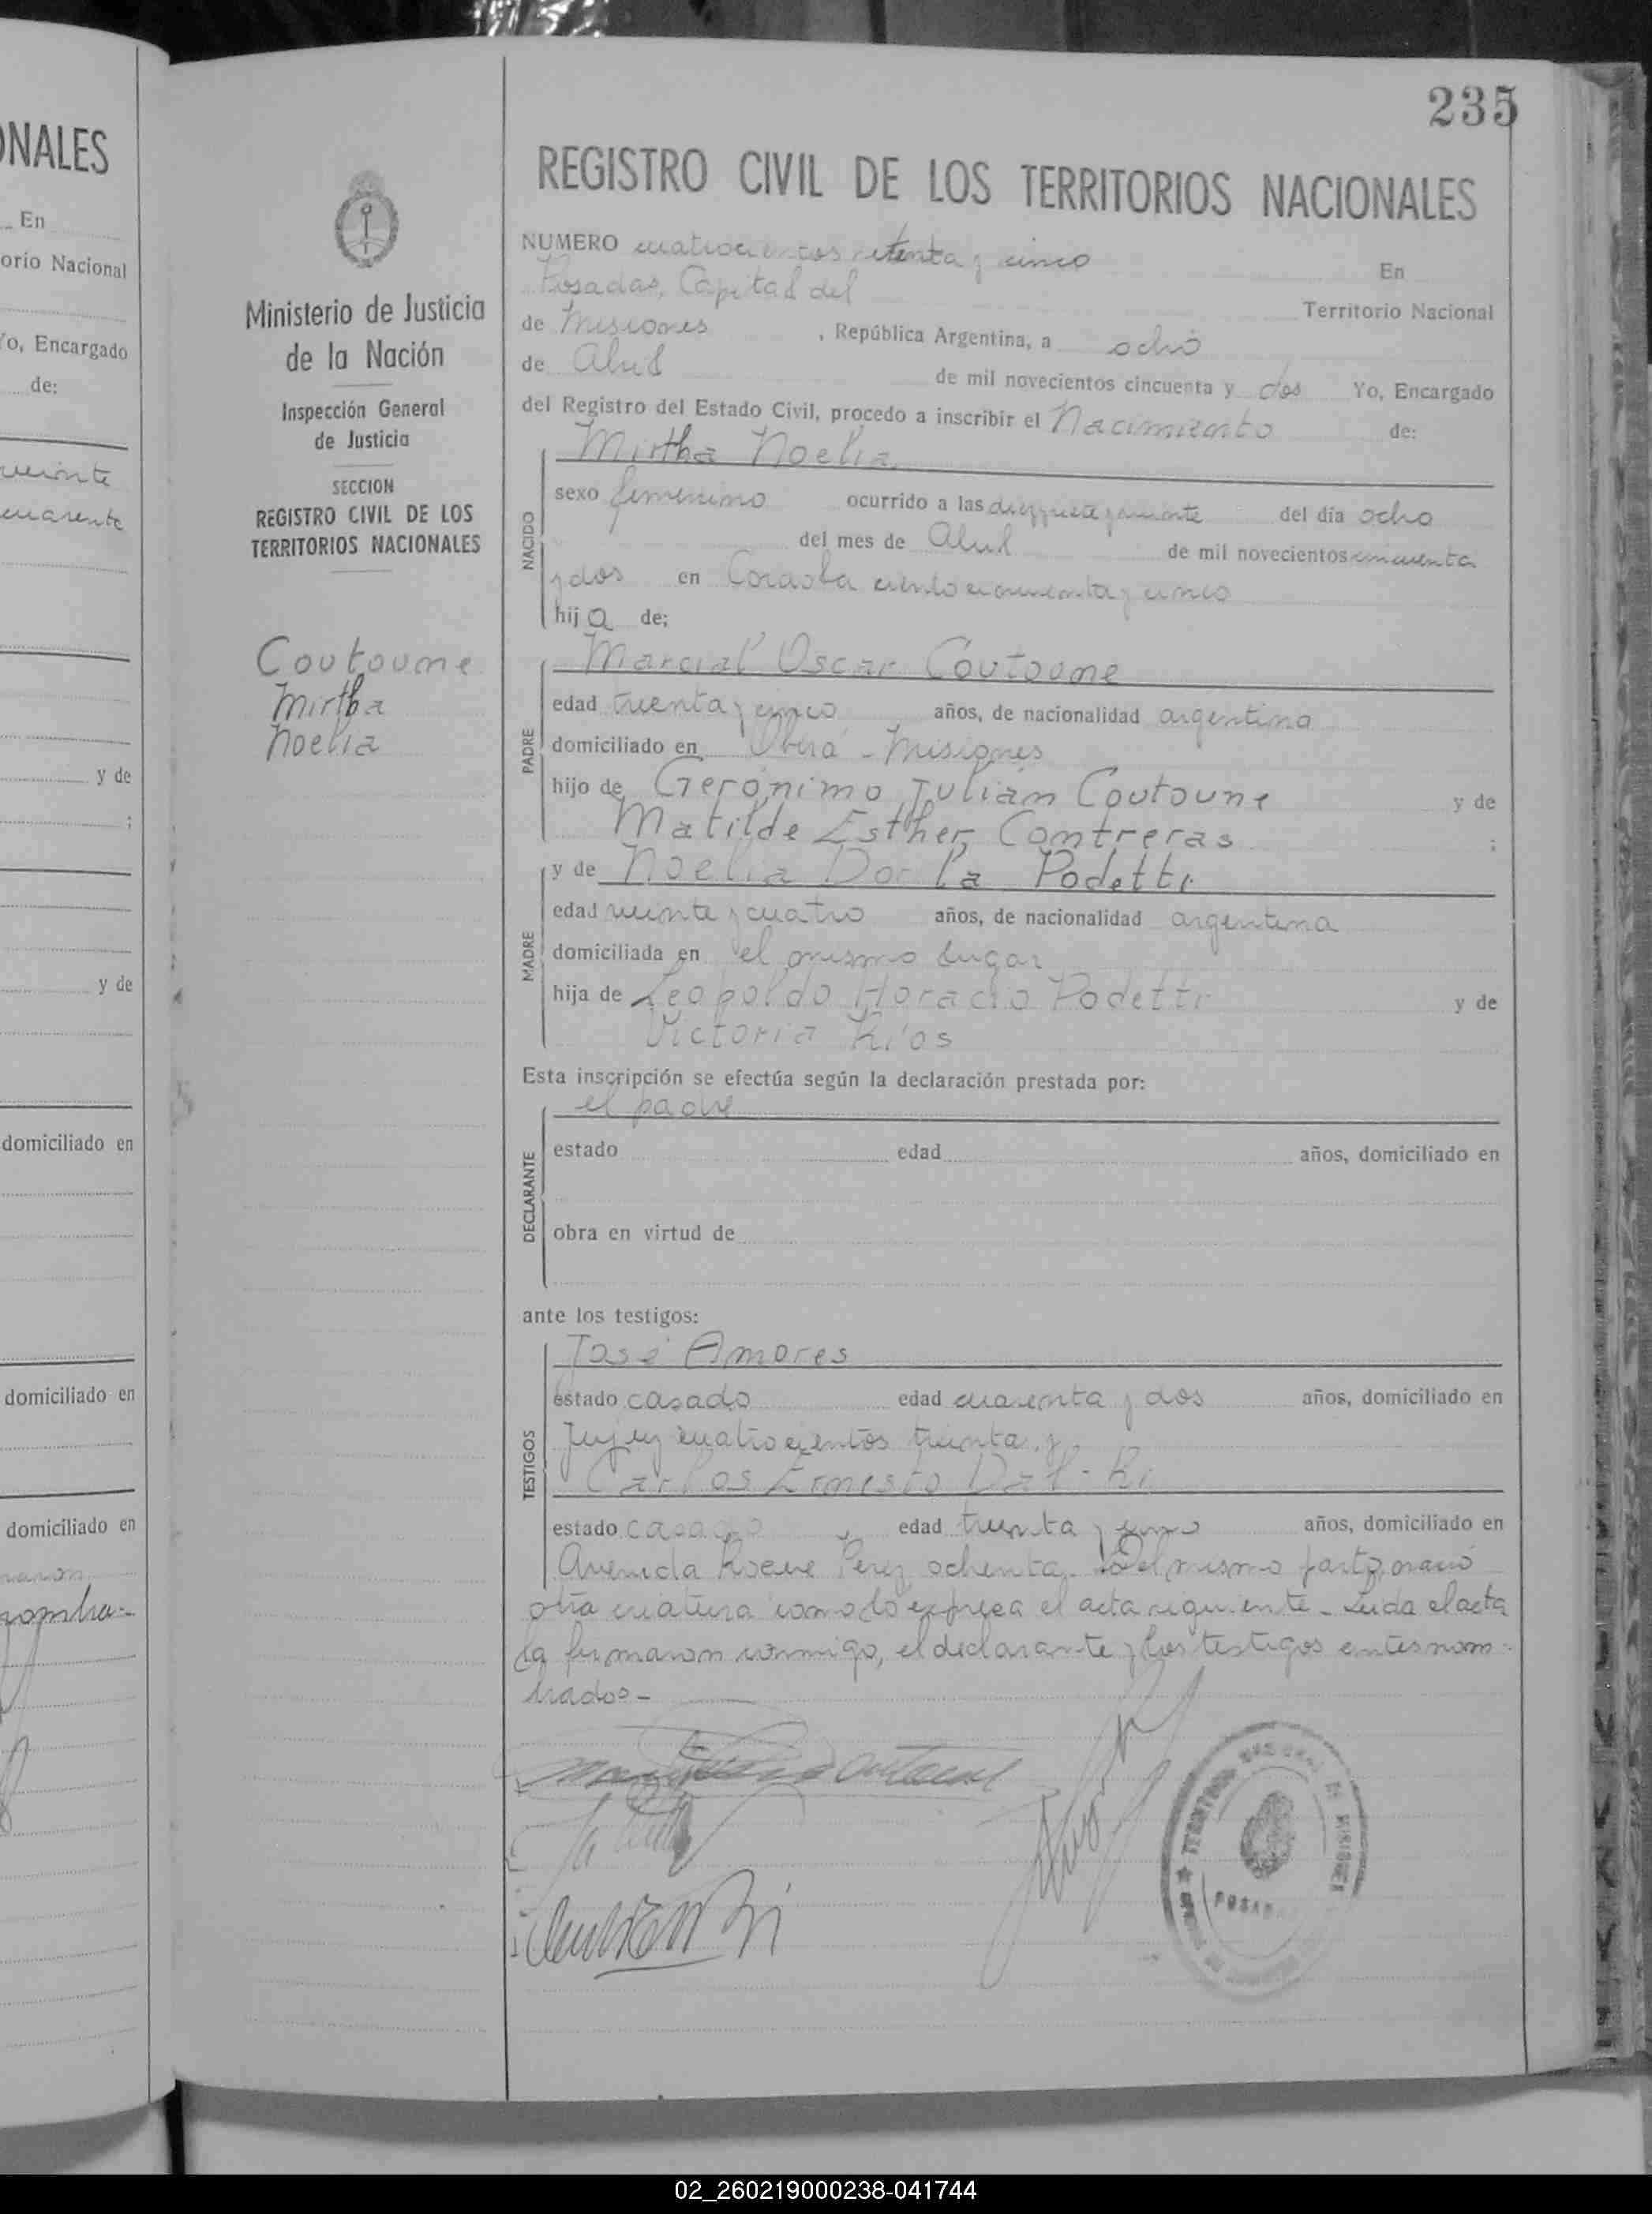 ONALES
En
orio Nacional
Yo, Encargado
de:
veinte
cuarenta
y de
;
y de
domiciliado en
domiciliado en
domiciliado en
235
REGISTRO CIVIL DE LOS TERRITORIOS NACIONALES
Ministerio de Justicia
de la Nación
Inspección General
de Justicia
SECCION
REGISTRO CIVIL DE LOS
TERRITORIOS NACIONALES
Coutoune
Mirtha
Noelia
NUMERO cuatrocientos setenta y cinco En
Posadas, Capital del Territorio Nacional
de Misiones, República Argentina, a ocho
de Abril de mil novecientos cincuenta y dos Yo, Encargado
del Registro del Estado Civil, procedo a inscribir el Nacimiento de:
NACIDO
Mirtha Noelia
sexo femenino ocurrido a las diez y siete y veinte del día ocho
del mes de Abril de mil novecientos cincuenta
y dos en Cordoba ciento cincuenta y cinco
hij a de;
PADRE
Marcial Oscar Coutoune
edad treinta y cinco años, de nacionalidad argentina
domiciliado en Oberá - Misiones
hijo de Gerónimo Julián Coutoune y de
Matilde Esther Contreras ;
MADRE
y de Noelia Dorila Podetti
edad veinte y cuatro años, de nacionalidad argentina
domiciliada en el mismo lugar
hija de Leopoldo Horacio Podetti y de
Victoria Ríos
Esta inscripción se efectúa según la declaración prestada por:
DECLARANTE
el padre
estado edad años, domiciliado en
obra en virtud de
ante los testigos:
TESTIGOS
José Amores
estado casado edad cuarenta y dos años, domiciliado en
Jujuy cuatrocientos treinta y
Carlos Ernesto Dal-Ri
estado casado edad treinta y uno años, domiciliado en
Avenida Roque Perez ochenta. Del mismo parto nació
otra criatura como lo expresa el acta siguiente - Leida el acta
la firmaron conmigo, el declarante y los testigos antes nom-
brados -
TERRITORIO NACIONAL DE MISIONES
POSADAS
02_260219000238-041744